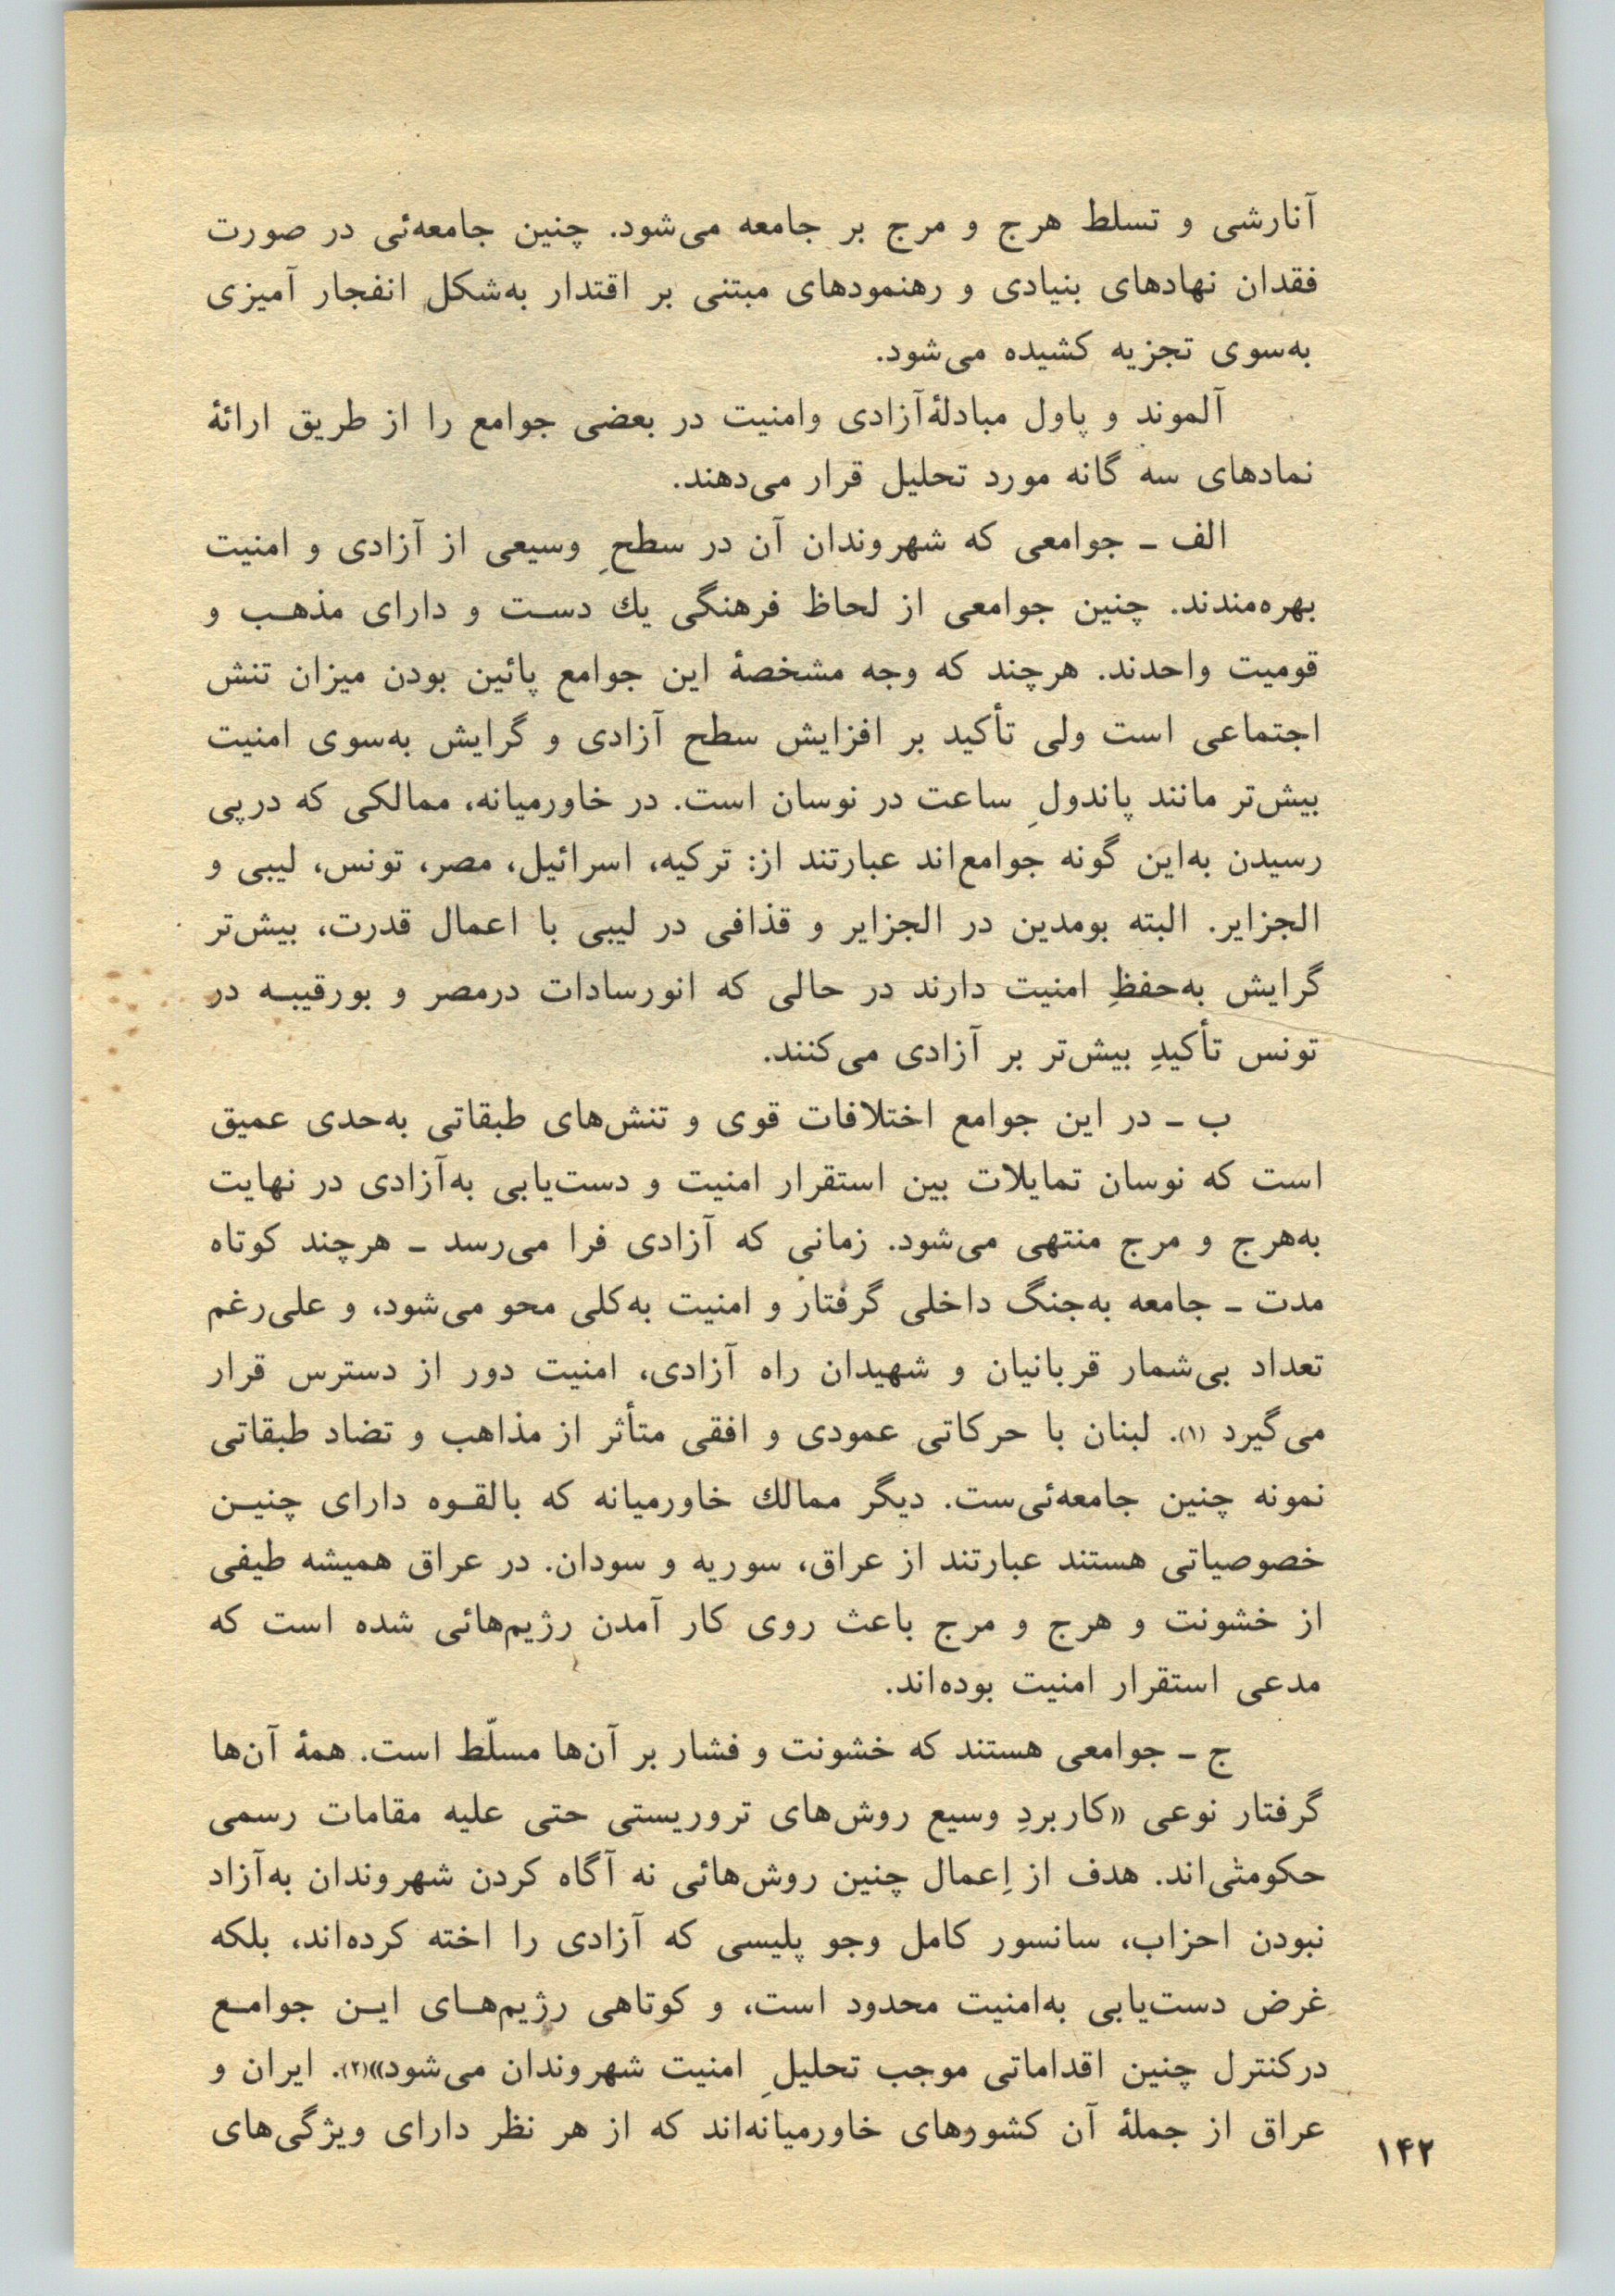 آنارشی و تسلط هرج و مرج بر جامعه می‌شود. چنین جامعه‌ئی در صورت
فقدان نهادهای بنیادی و رهنمودهای مبتنی بر اقتدار به‌شکل انفجار آمیزی
به‌سوی تجزیه کشیده می‌شود.
آلموند و پاول مبادلهٔ‌آزادی وامنیت در بعضی جوامع را از طریق ارائهٔ
نمادهای سه گانه مورد تحلیل قرار می‌دهند.
الف ـ جوامعی که شهروندان آن در سطحِ وسیعی از آزادی و امنیت
بهره‌مندند. چنین جوامعی از لحاظ فرهنگی یك دست و دارای مذهب و
قومیت واحدند. هرچند که وجه مشخصهٔ این جوامع پائین بودن میزان تنش
اجتماعی است ولی تأکید بر افزایش سطح آزادی و گرایش به‌سوی امنیت
بیش‌تر مانند پاندولِ ساعت در نوسان است. در خاورمیانه، ممالکی که درپی
رسیدن به‌این گونه جوامع‌اند عبارتند از: ترکیه، اسرائیل، مصر، تونس، لیبی و
الجزایر. البته بومدین در الجزایر و قذافی در لیبی با اعمال قدرت، بیش‌تر
گرایش به‌حفظِ امنیت دارند در حالی که انورسادات درمصر و بورقیبه در
تونس تأکیدِ بیش‌تر بر آزادی می‌کنند.
ب ـ در این جوامع اختلافات قوی و تنش‌های طبقاتی به‌حدی عمیق
است که نوسان تمایلات بین استقرار امنیت و دست‌یابی به‌آزادی در نهایت
به‌هرج و مرج منتهی می‌شود. زمانی که آزادی فرا می‌رسد ـ هرچند کوتاه
مدت ـ جامعه به‌جنگ داخلی گرفتار و امنیت به‌کلی محو می‌شود، و علی‌رغم
تعداد بی‌شمار قربانیان و شهیدان راه آزادی، امنیت دور از دسترس قرار
می‌گیرد (۱). لبنان با حرکاتی عمودی و افقی متأثر از مذاهب و تضاد طبقاتی
نمونه چنین جامعه‌ئی‌ست. دیگر ممالك خاورمیانه که بالقوه دارای چنین
خصوصیاتی هستند عبارتند از عراق، سوریه و سودان. در عراق همیشه طیفی
از خشونت و هرج و مرج باعث روی کار آمدن رژیم‌هائی شده است که
مدعی استقرار امنیت بوده‌اند.
ج ـ جوامعی هستند که خشونت و فشار بر آن‌ها مسلّط است. همهٔ آن‌ها
گرفتار نوعی «کاربردِ وسیع روش‌های تروریستی حتی علیه مقامات رسمی
حکومتی‌اند. هدف از اِعمال چنین روش‌هائی نه آگاه کردن شهروندان به‌آزاد
نبودن احزاب، سانسور کامل وجو پلیسی که آزادی را اخته کرده‌اند، بلکه
غرض دست‌یابی به‌امنیت محدود است، و کوتاهی رژیم‌های این جوامع
درکنترل چنین اقداماتی موجب تحلیلِ امنیت شهروندان می‌شود»(۲). ایران و
عراق از جملهٔ آن کشووهای خاورمیانه‌اند که از هر نظر دارای ویژگی‌های
۱۴۲